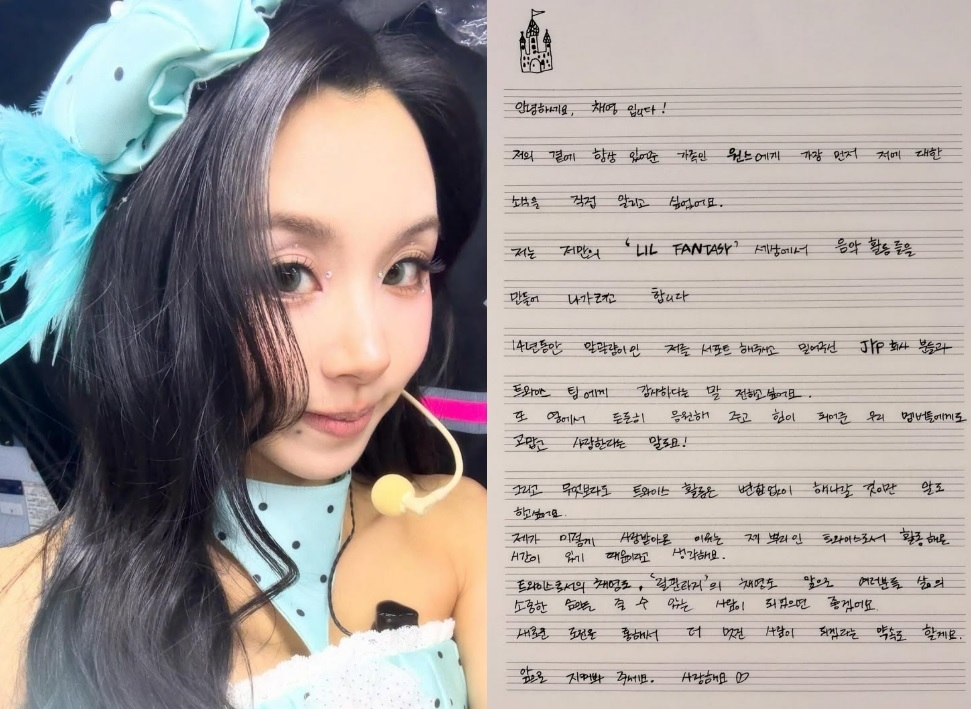 안녕하세요, 채영 입니다!
저의 곁에 항상 있어준 가족인 원스에게 가장 먼저 저에 대한
소식을 직접 알리고 싶었어요.
저는 저만의 'LIL FANTASY' 세상에서 음악 활동들을
만들어 나가려고 합니다
14년동안 말괄량이인 저를 서포트 해주시고 밀어주신 JYP 회사 분들과
트와이스 팀에게 감사하다는 말 전하고 싶어요.
또 옆에서 든든히 응원해 주고 힘이 되어준 우리 멤버들에게도
고맙고 사랑한다는 말도요!
그리고 무엇보다도 트와이스 활동은 변함없이 해나갈 것이란 말도
하고싶어요.
제가 이렇게 사랑받아온 이유는 제 뿌리인 트와이스로서 활동해온
시간이 있기 때문이라고 생각해요.
트와이스로서의 채영도, '릴판타지'의 채영도 앞으로 여러분들 삶의
소중한 숨을 줄 수 있는 사람이 되었으면 좋겠어요.
새로운 도전을 통해서 더 멋진 사람이 되겠다는 약속도 할게요.
앞으로 지켜봐 주세요. 사랑해요♡